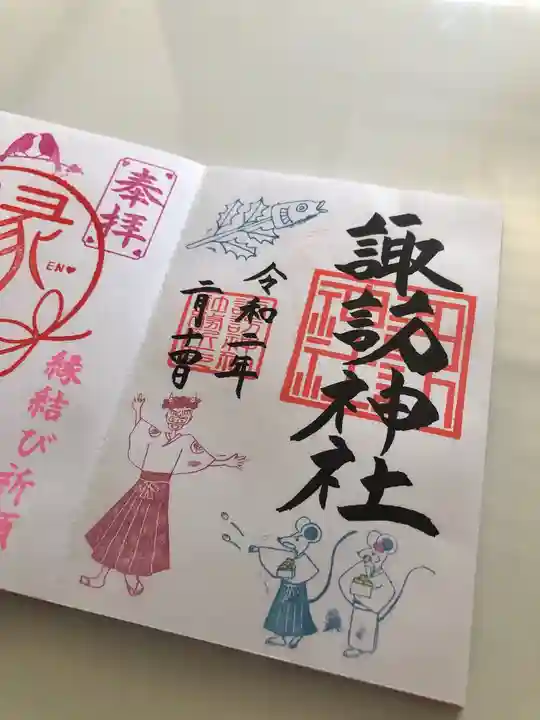 諏訪神社
令和二年
二月十四日
奉拝
縁
EN♥
縁結び祈願